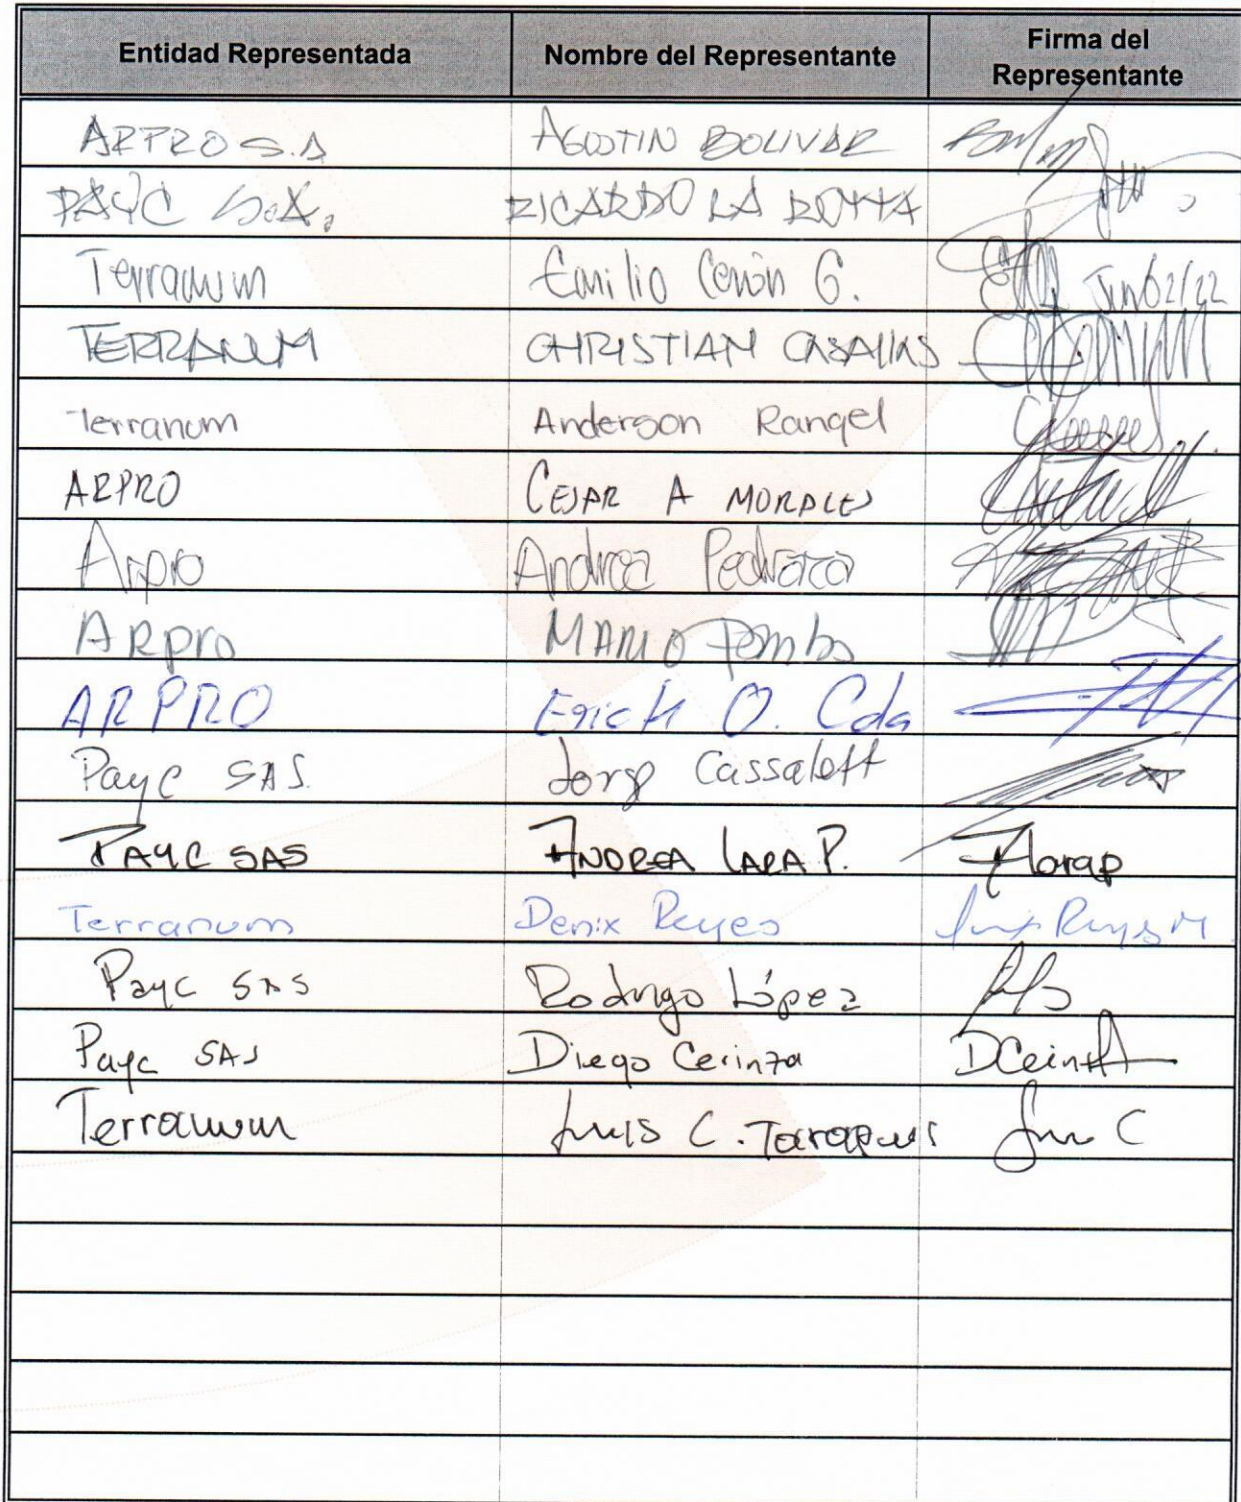 Entidad Representada Nombre del Representante Firma del Representante
ARPRO S.A AGUSTIN BOLIVAR
PAYC S.A. RICARDO LA ROTTA
Terranum Emilio Cerón G. Jun 02/22
TERRANUM CHRISTIAN CASALLAS
Terranum Anderson Rangel
ARPRO CESAR A MORALES
Arpro Andrea Pedraza
ARpro MARIO Pombo
ARPRO Erick O. Cda
Payc SAS. Jorge Cassalett
PAYC SAS ANDREA LARA P. Alarap
Terranum Denix Reyes Reyes M
Payc SAS Rodrigo López
Payc SAS Diego Cerinza
Terranum Luis C. Tarapues